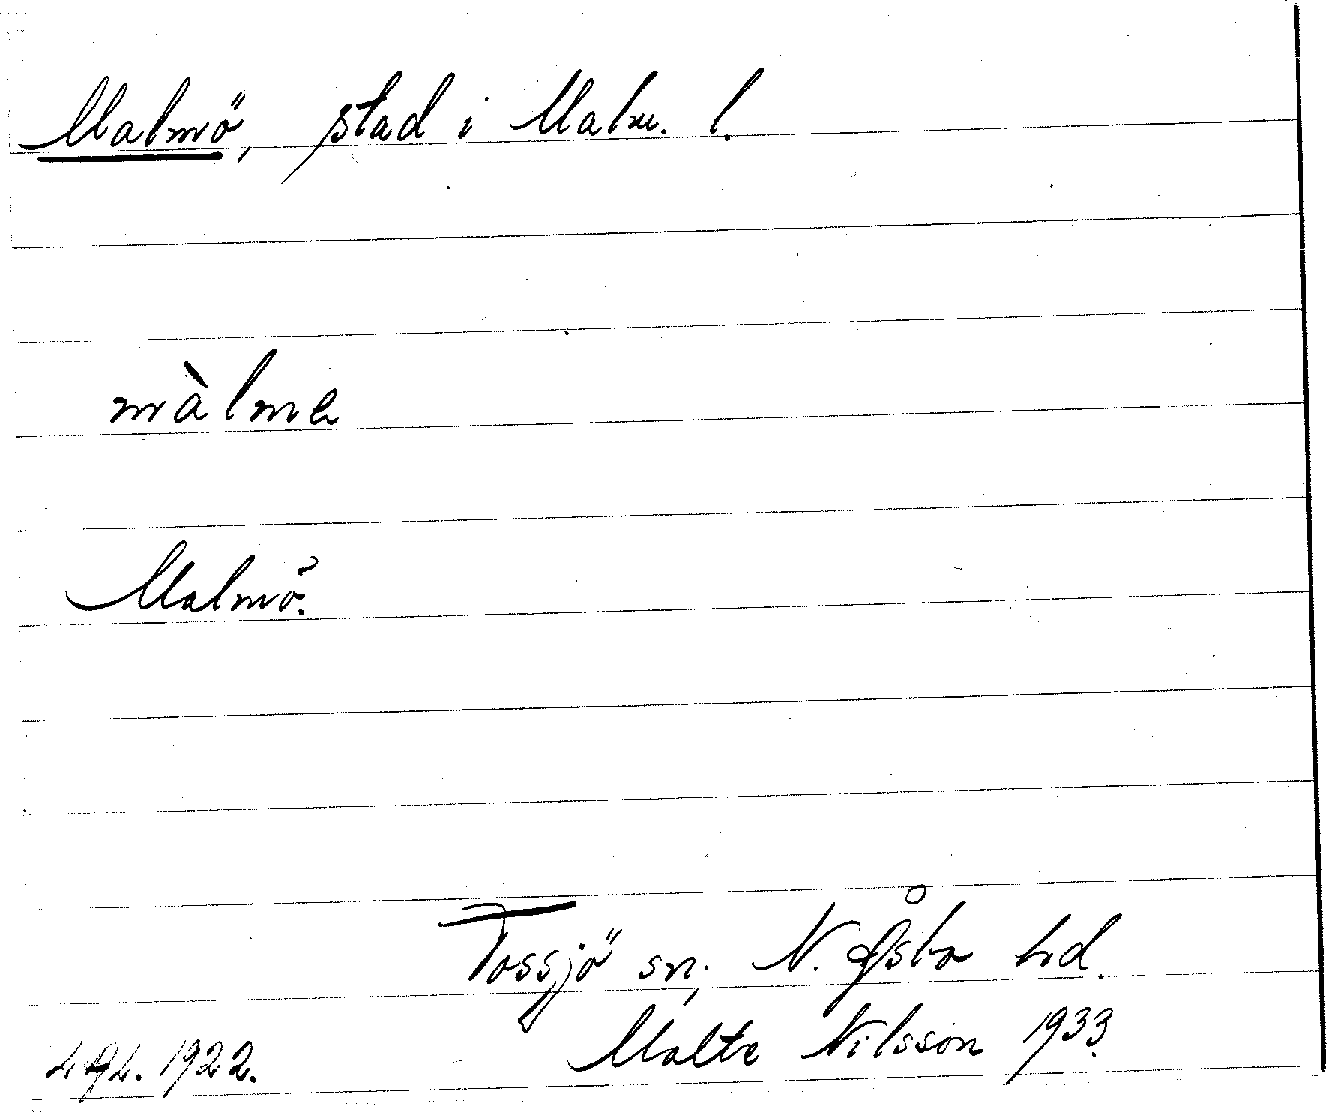 Malmö, stad i Malm. l.
màlme
Malmö.
Tossjö sn, N. Åsbo hd.
Malte Nilsson 1933.
1922.